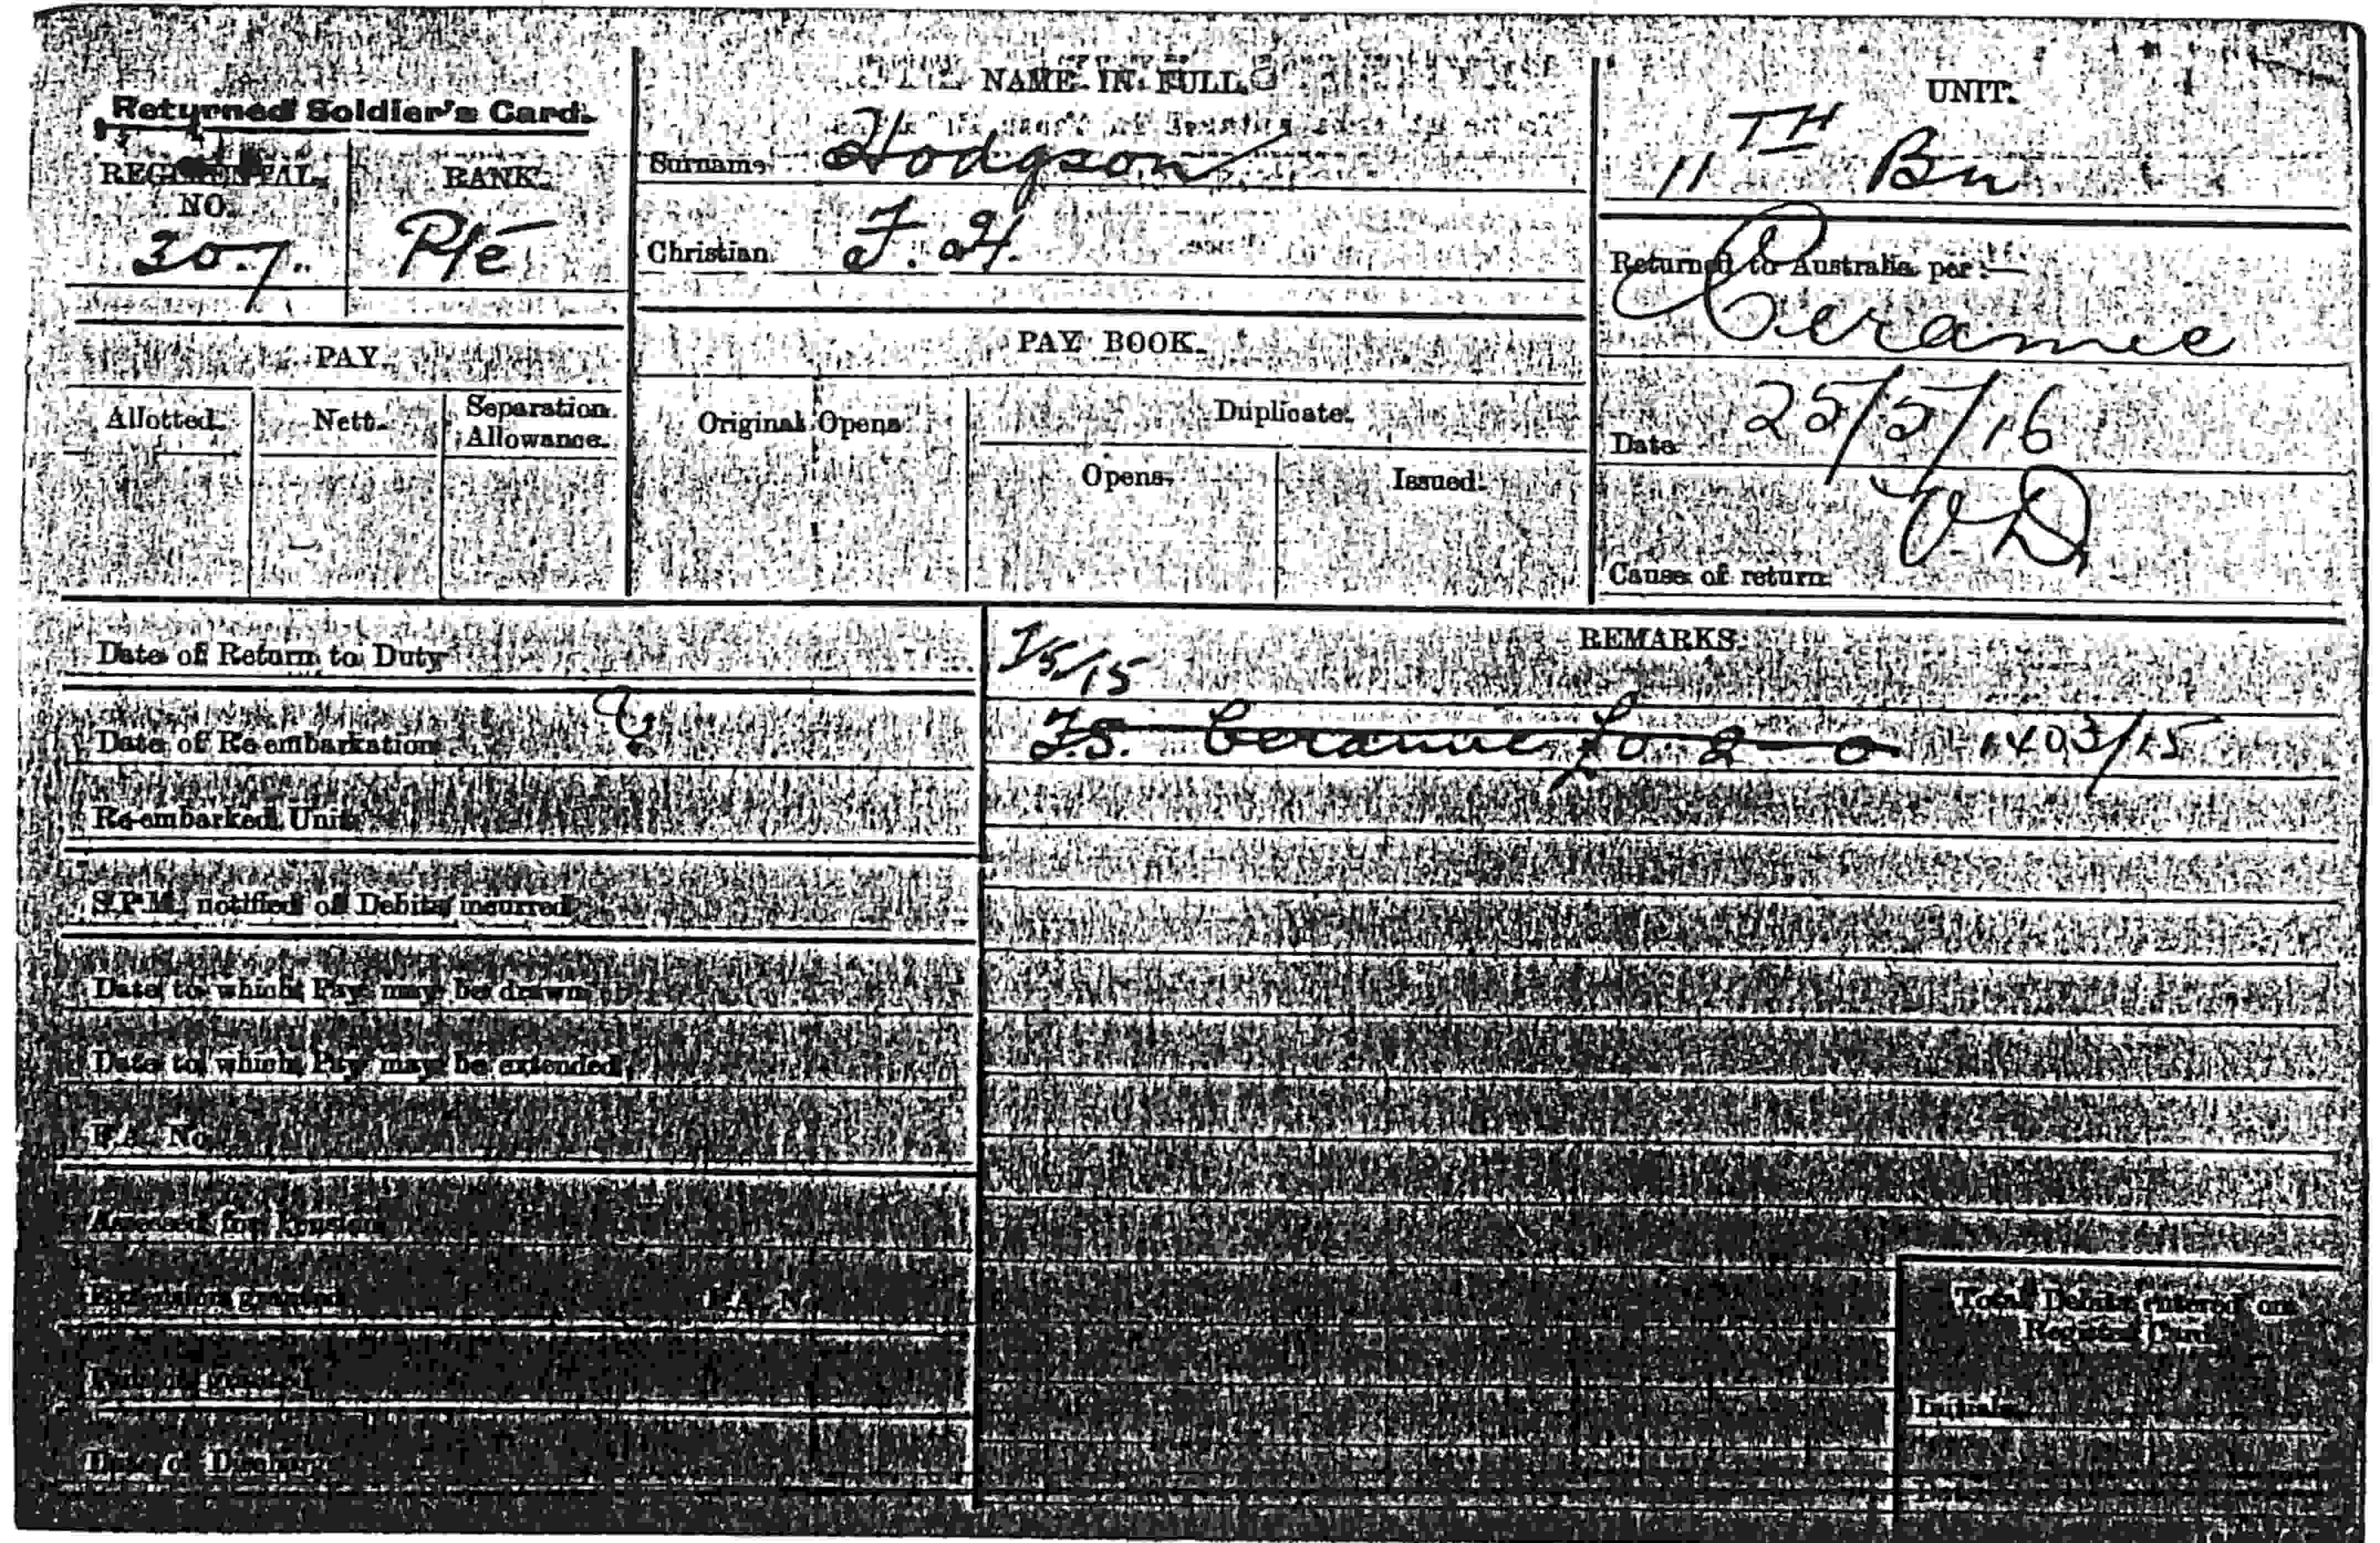 Returned Soldier's Card.
REGIMENTAL NO.
307.
RANK.
Pte
NAME IN FULL.
Surname Hodgson
Christian F. H.
UNIT.
11TH Bn
Returned to Australia per:—
Ceramic
Date 25/5/16
Cause of return V.D.
PAY.
Allotted.
Nett.
Separation Allowance.
PAY BOOK.
Original Opens
Duplicate.
Opens.
Issued.
Date of Return to Duty
Date of Re-embarkation
Re-embarked Unit
S.P.M. notified of Debits incurred
Date to which Pay may be drawn
Date to which Pay may be extended
P.A. No.
Assessed for Pension
Date of Discharge
REMARKS
7/5/15
F.S. Ceramic £0-2-0 1403/15
Total Debits entered on
Register Card
Initials